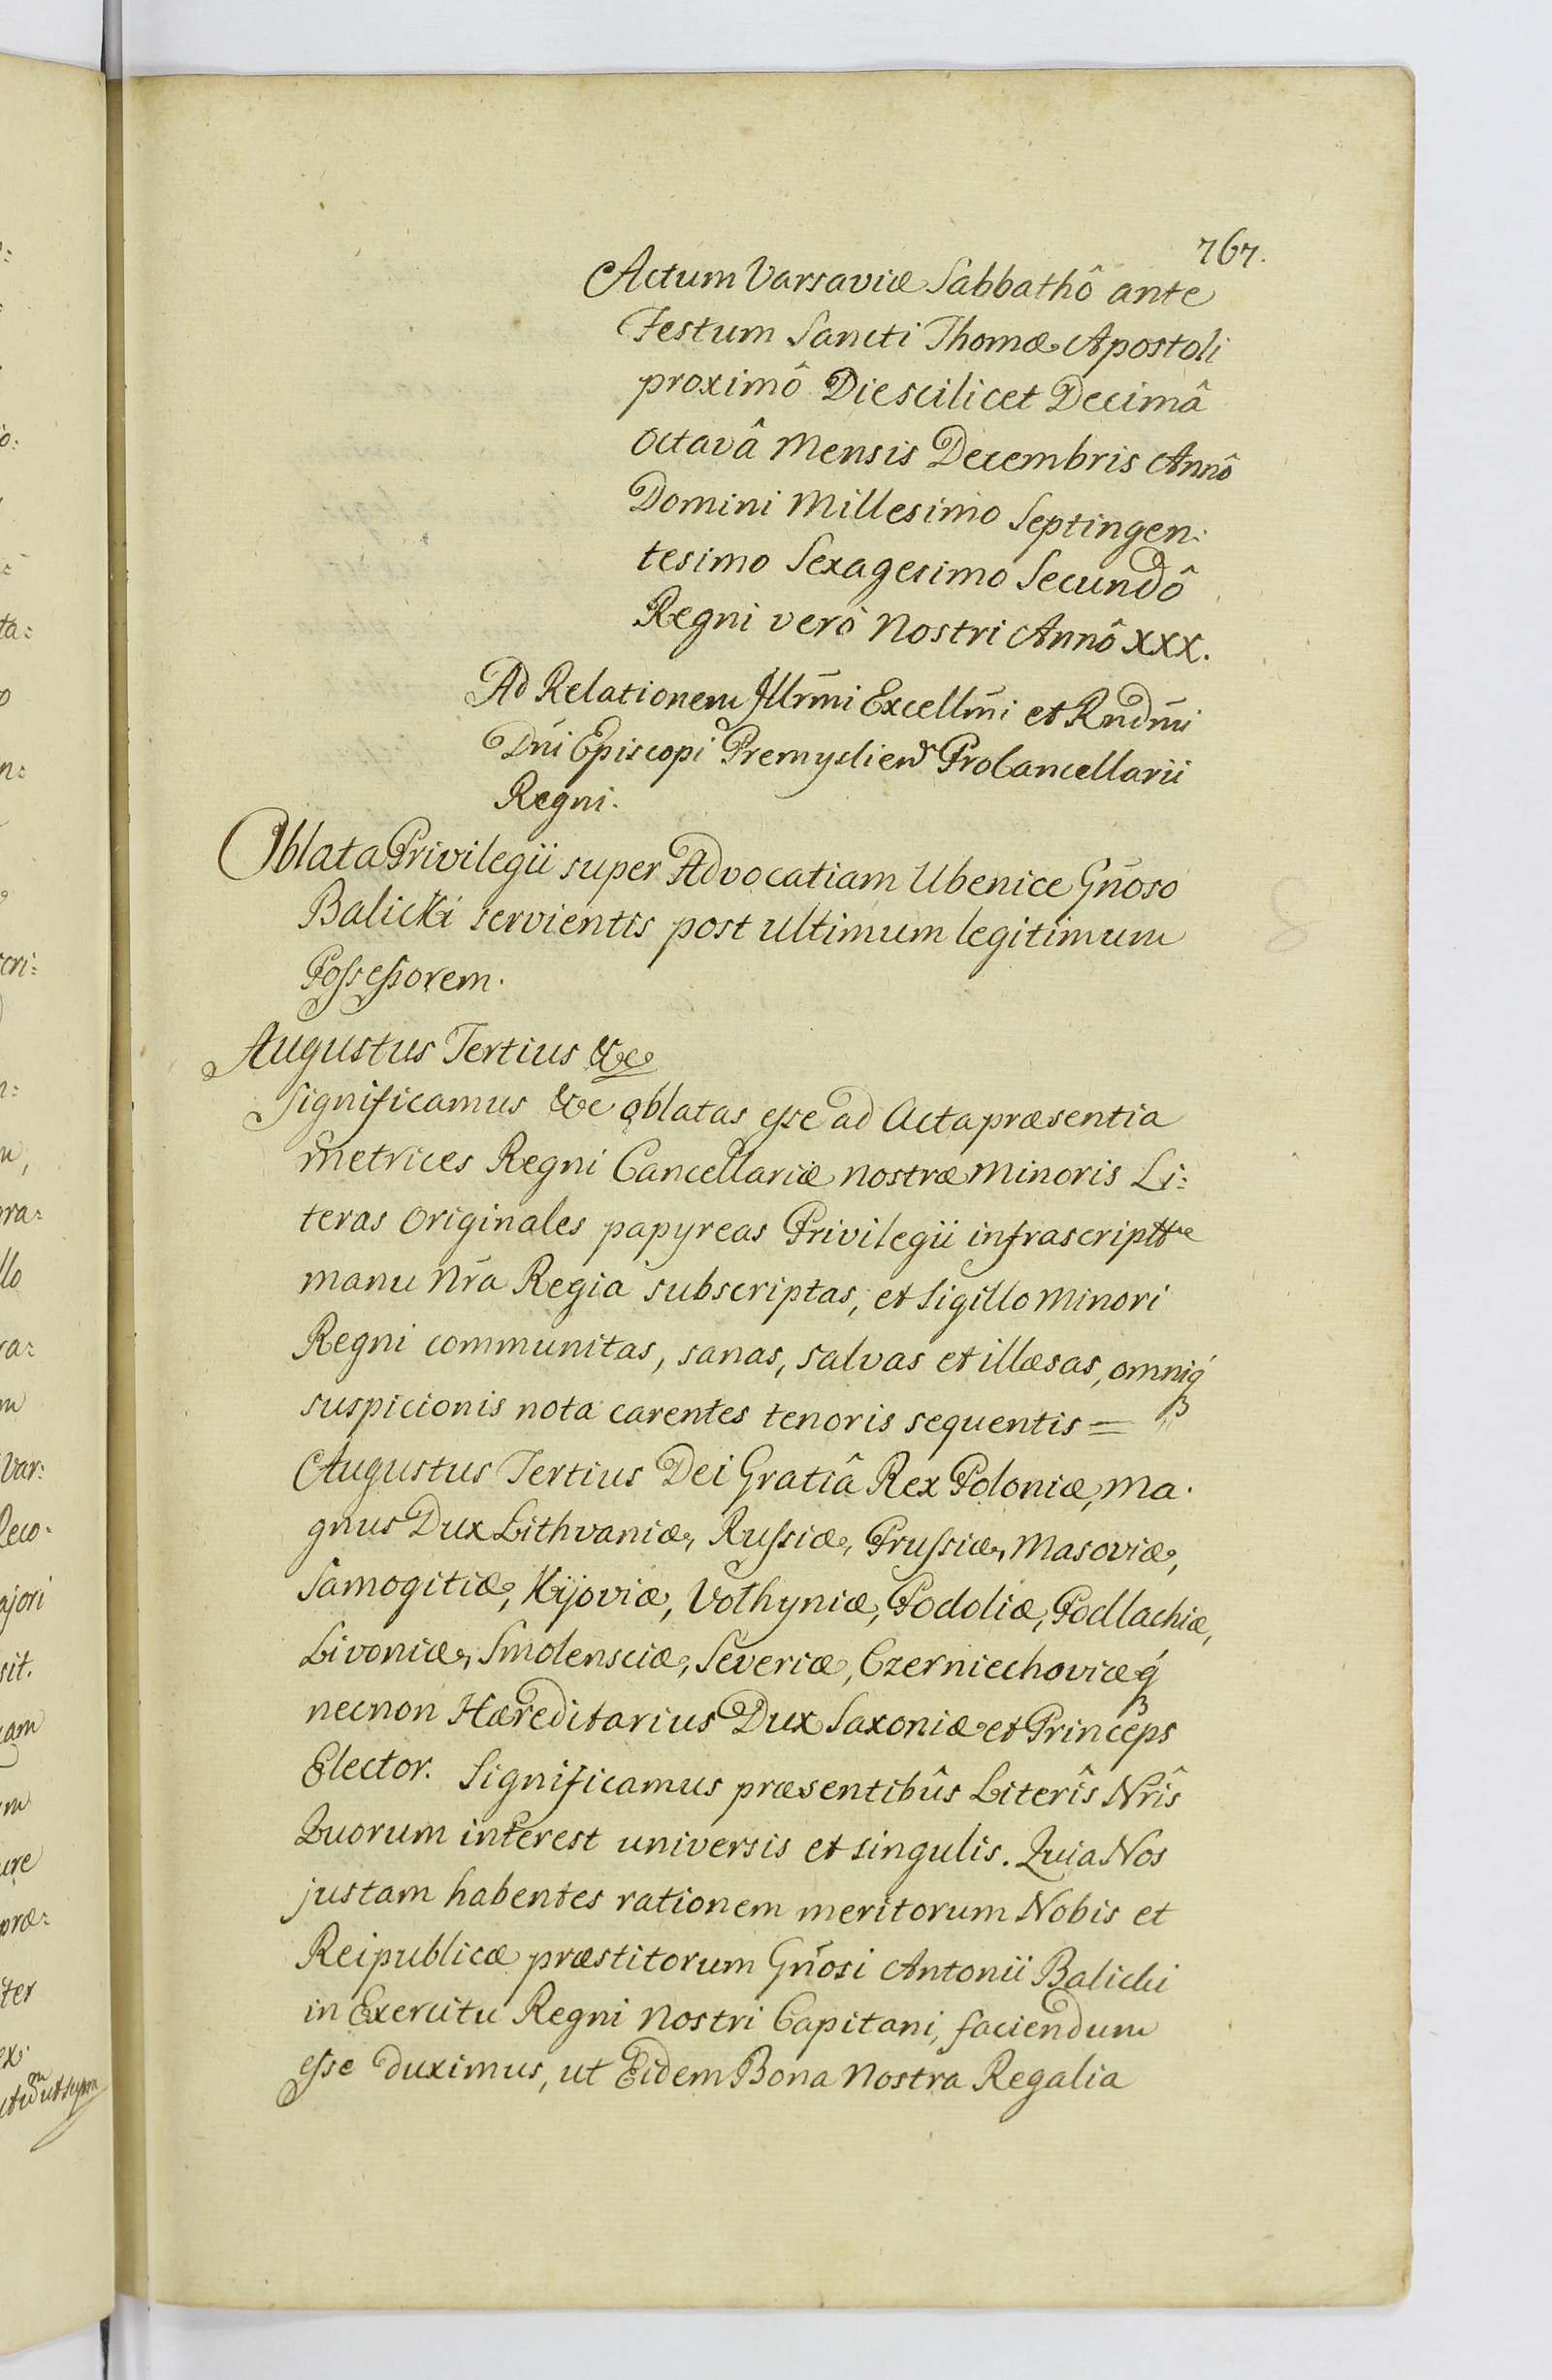 767.
Actum Varsaviæ Sabbathô ante
Festum Sancti Thomæ Apostoli
proximô Die scilicet Decimâ
octavâ Mensis Decembris Annô
Domini Millesimo Septingen:
tesimo Sexagesimo Secundô
Regni verò Nostri Annô XXX.
Ad Relationem Illr̃mi Excellm̃i et Rndm̃i
Dn̄i Episcopi Premyslien̄ ProCancellarii
Regni.
Oblata Privilegii super Advocatiam Ubenice Gn̄oso
Balicki servientis post ultimum legitimum
Possessorem.
Augustus Tertius &c
Significamus &c oblatas esse ad Acta præsentia
Metrices Regni Cancellariæ nostræ Minoris Li:
teras originales papyreas Privilegii infrascriptt
manu Nr̄a Regia subscriptas, et Sigillo Minori
Regni communitas, sanas, salvas et illæsas, omniq́
suspicionis nota carentes tenoris sequentis =
Augustus Tertius Dei Gratiâ Rex Poloniæ, Ma.
gnus Dux Lithvaniæ, Russiæ, Prussiæ, Masoviæ,
Samogitiæ, Kijoviæ, Volhyniæ, Podoliæ, Podlachiæ,
Livoniæ, Smolensciæ, Severiæ, Czerniechoviæq́
necnon Hæreditarius Dux Saxoniæ et Princeps
Elector. Significamus præsentibûs Literîs Nr̂is
Quorum interest universis et singulis. Quia Nos
justam habentes rationem meritorum Nobis et
Reipublicæ præstitorum Gn̄osi Antonii Balicki
in Exercitu Regni Nostri Capitani, faciendum
esse duximus, ut Eidem Bona Nostra Regalia